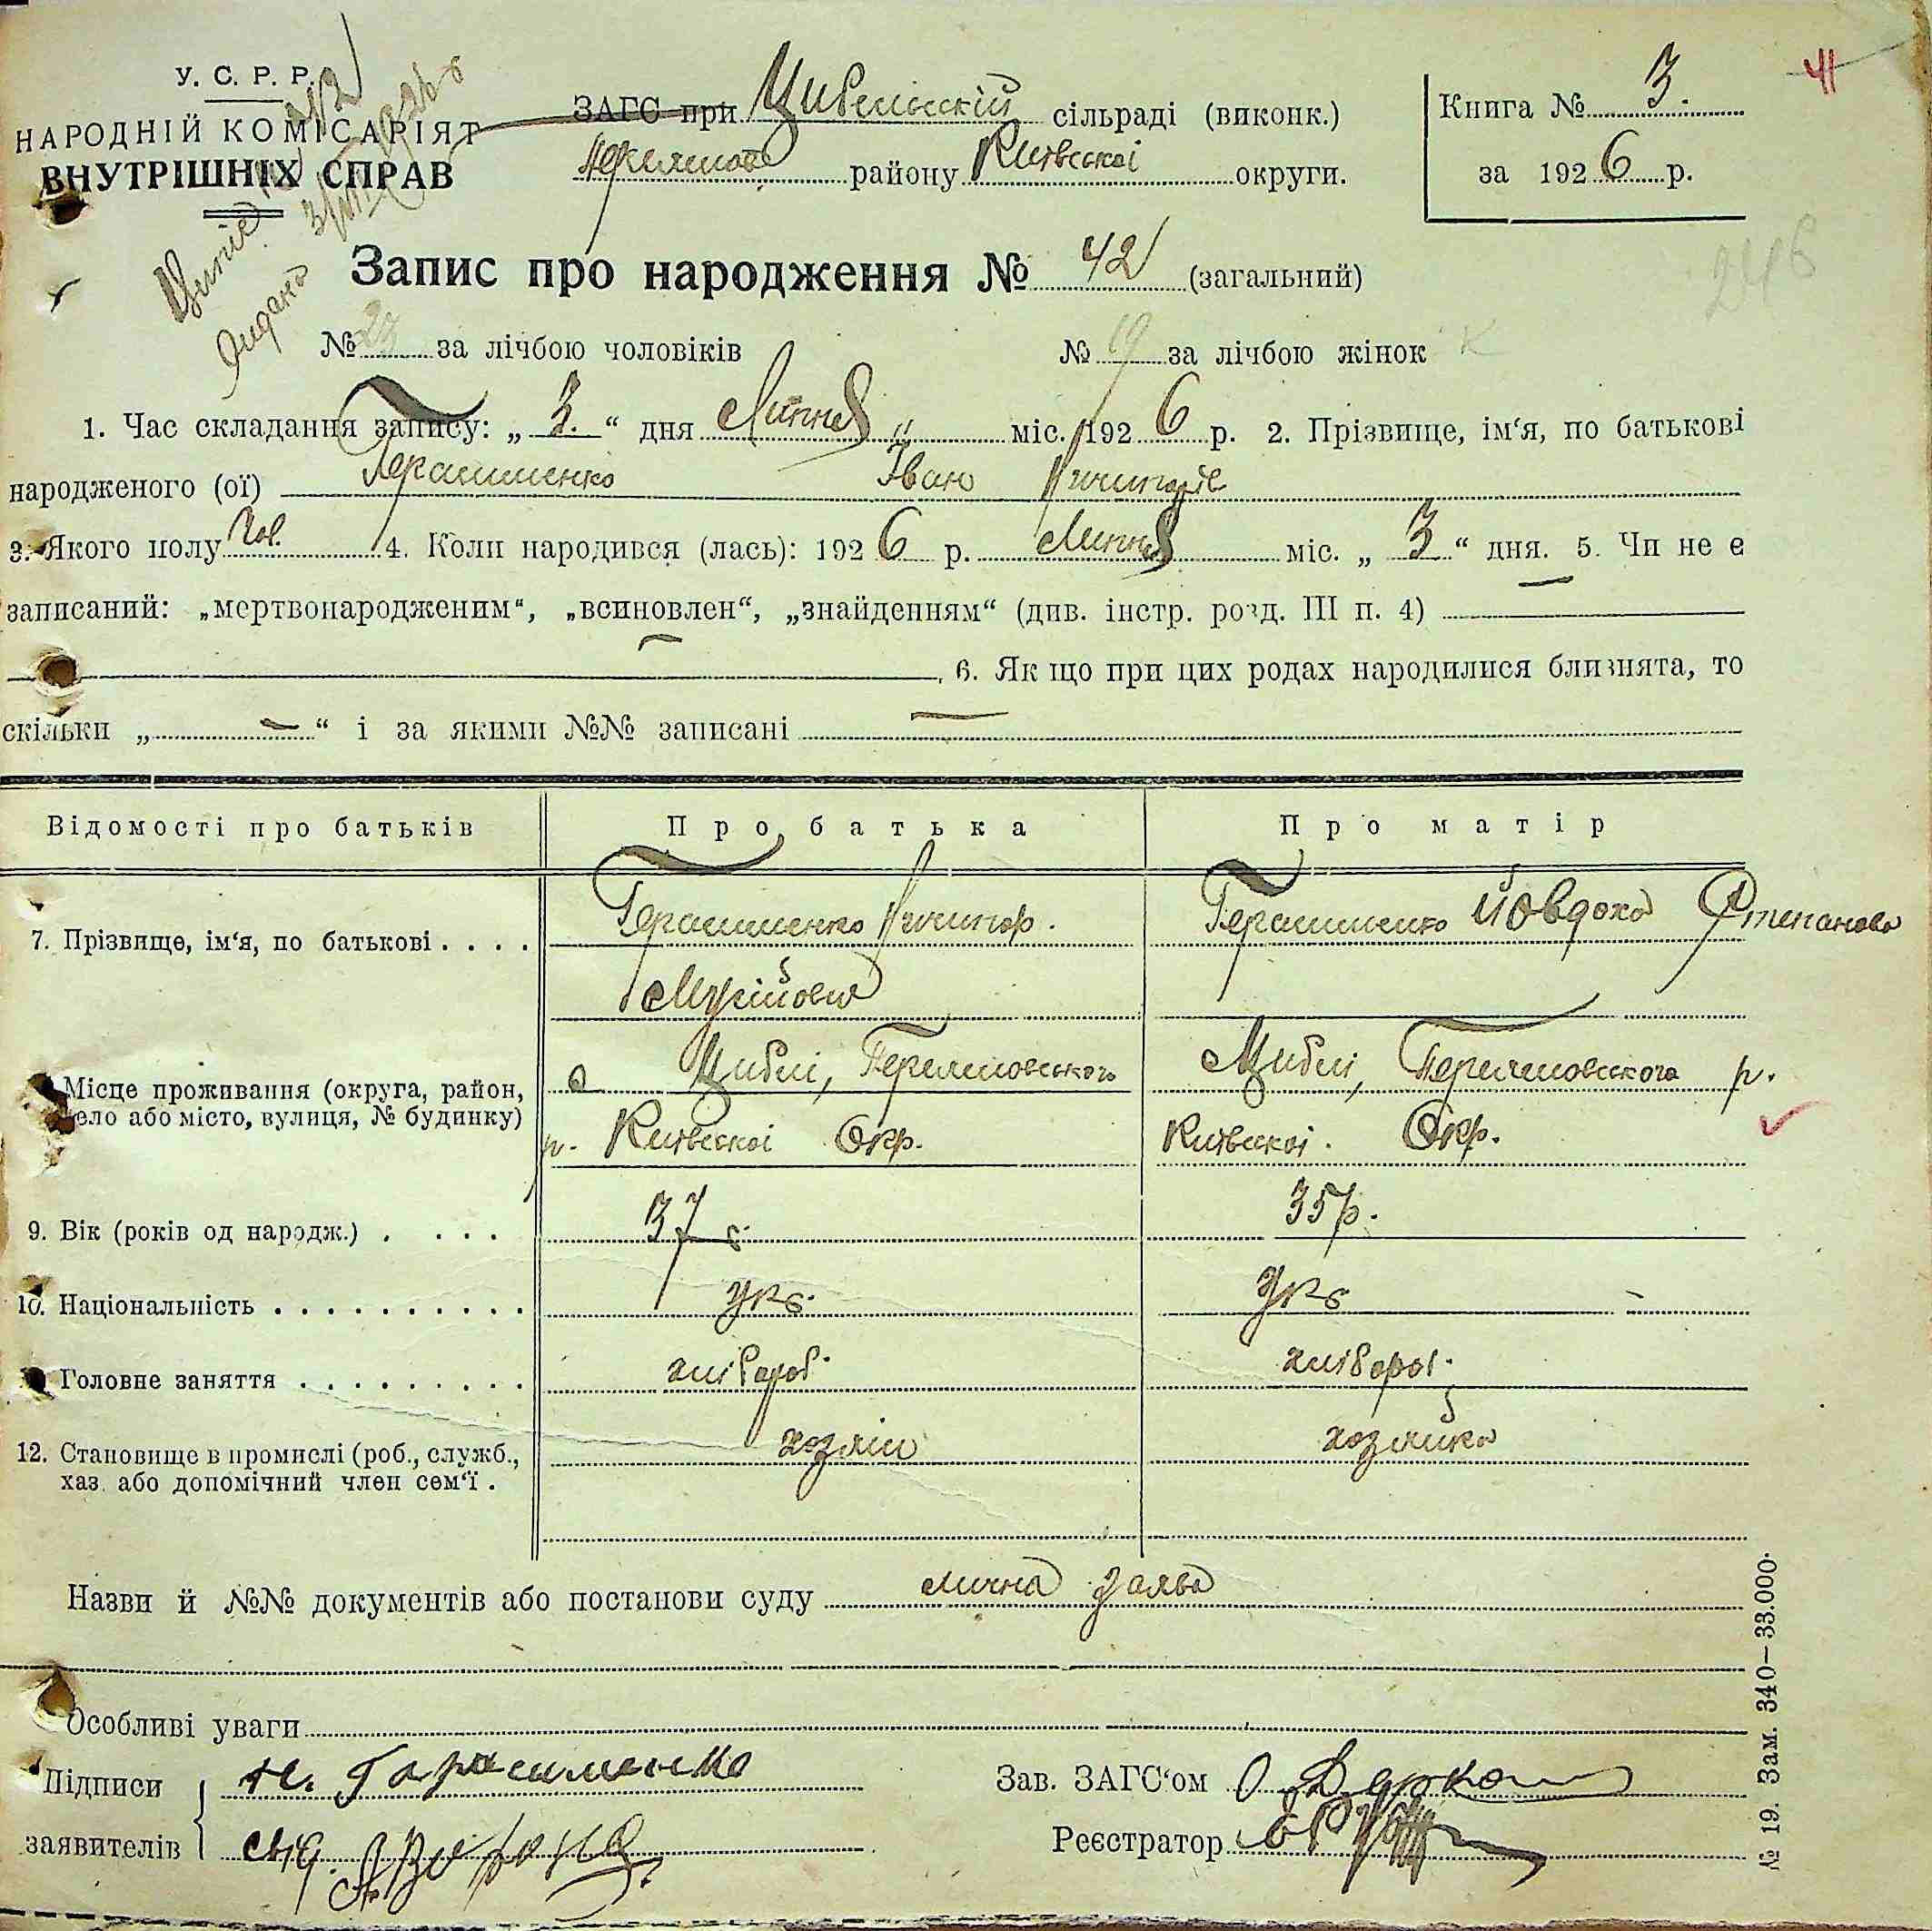 У. С. Р. Р.
НАРОДНІЙ КОМІСАРІЯТ
ВНУТРІШНІХ СПРАВ
ЗАГС при Цибельській сільраді (виконк.)
району Київської округи.
Книга № 3.
за 1926 р.
41
246
Запис про народження № 42 (загальний)
№ 23 за лічбою чоловіків № 19 за лічбою жінок
1. Час складання запису: „ 3. “ дня Липня міс. 1926 р. 2. Прізвище, ім‘я, по батькові
народженого (ої) Герасименко Іван
3. Якого полу Чол. 4. Коли народився (лась): 1926 р. Липня міс. „ 3 “ дня. 5. Чи не є
записаний: „мертвонародженим“, „всиновлен“, „знайденням“ (див. інстр. розд. III п. 4)
6. Як що при цих родах народилися близнята, то
скільки „ — “ і за якими №№ записані —
Відомості про батьків Про батька Про матір
7. Прізвище, ім‘я, по батькові . . . . Герасименко Ничипор. Герасименко Йовдоха Степанова
Місце проживання (округа, район, с Циблі, Переяловського Циблі, р.
село або місто, вулиця, № будинку) р. Київської Окр. Київської. Окр.
9. Вік (років од народж.) . . . . 37 35 р.
10. Національність . . . . . . . . . . Укр. Укр
Головне заняття . . . . . . . . . хлібороб. хлібороб.
12. Становище в промислі (роб., служб., хозяїн хозяйка
хаз. або допомічний член сем‘ї .
Назви й №№ документів або постанови суду лична заява
Особливі уваги
Підписи Н. Гарасименко Зав. ЗАГС‘ом
заявителів Реєстратор
№ 19. Зам. 340—33.000.